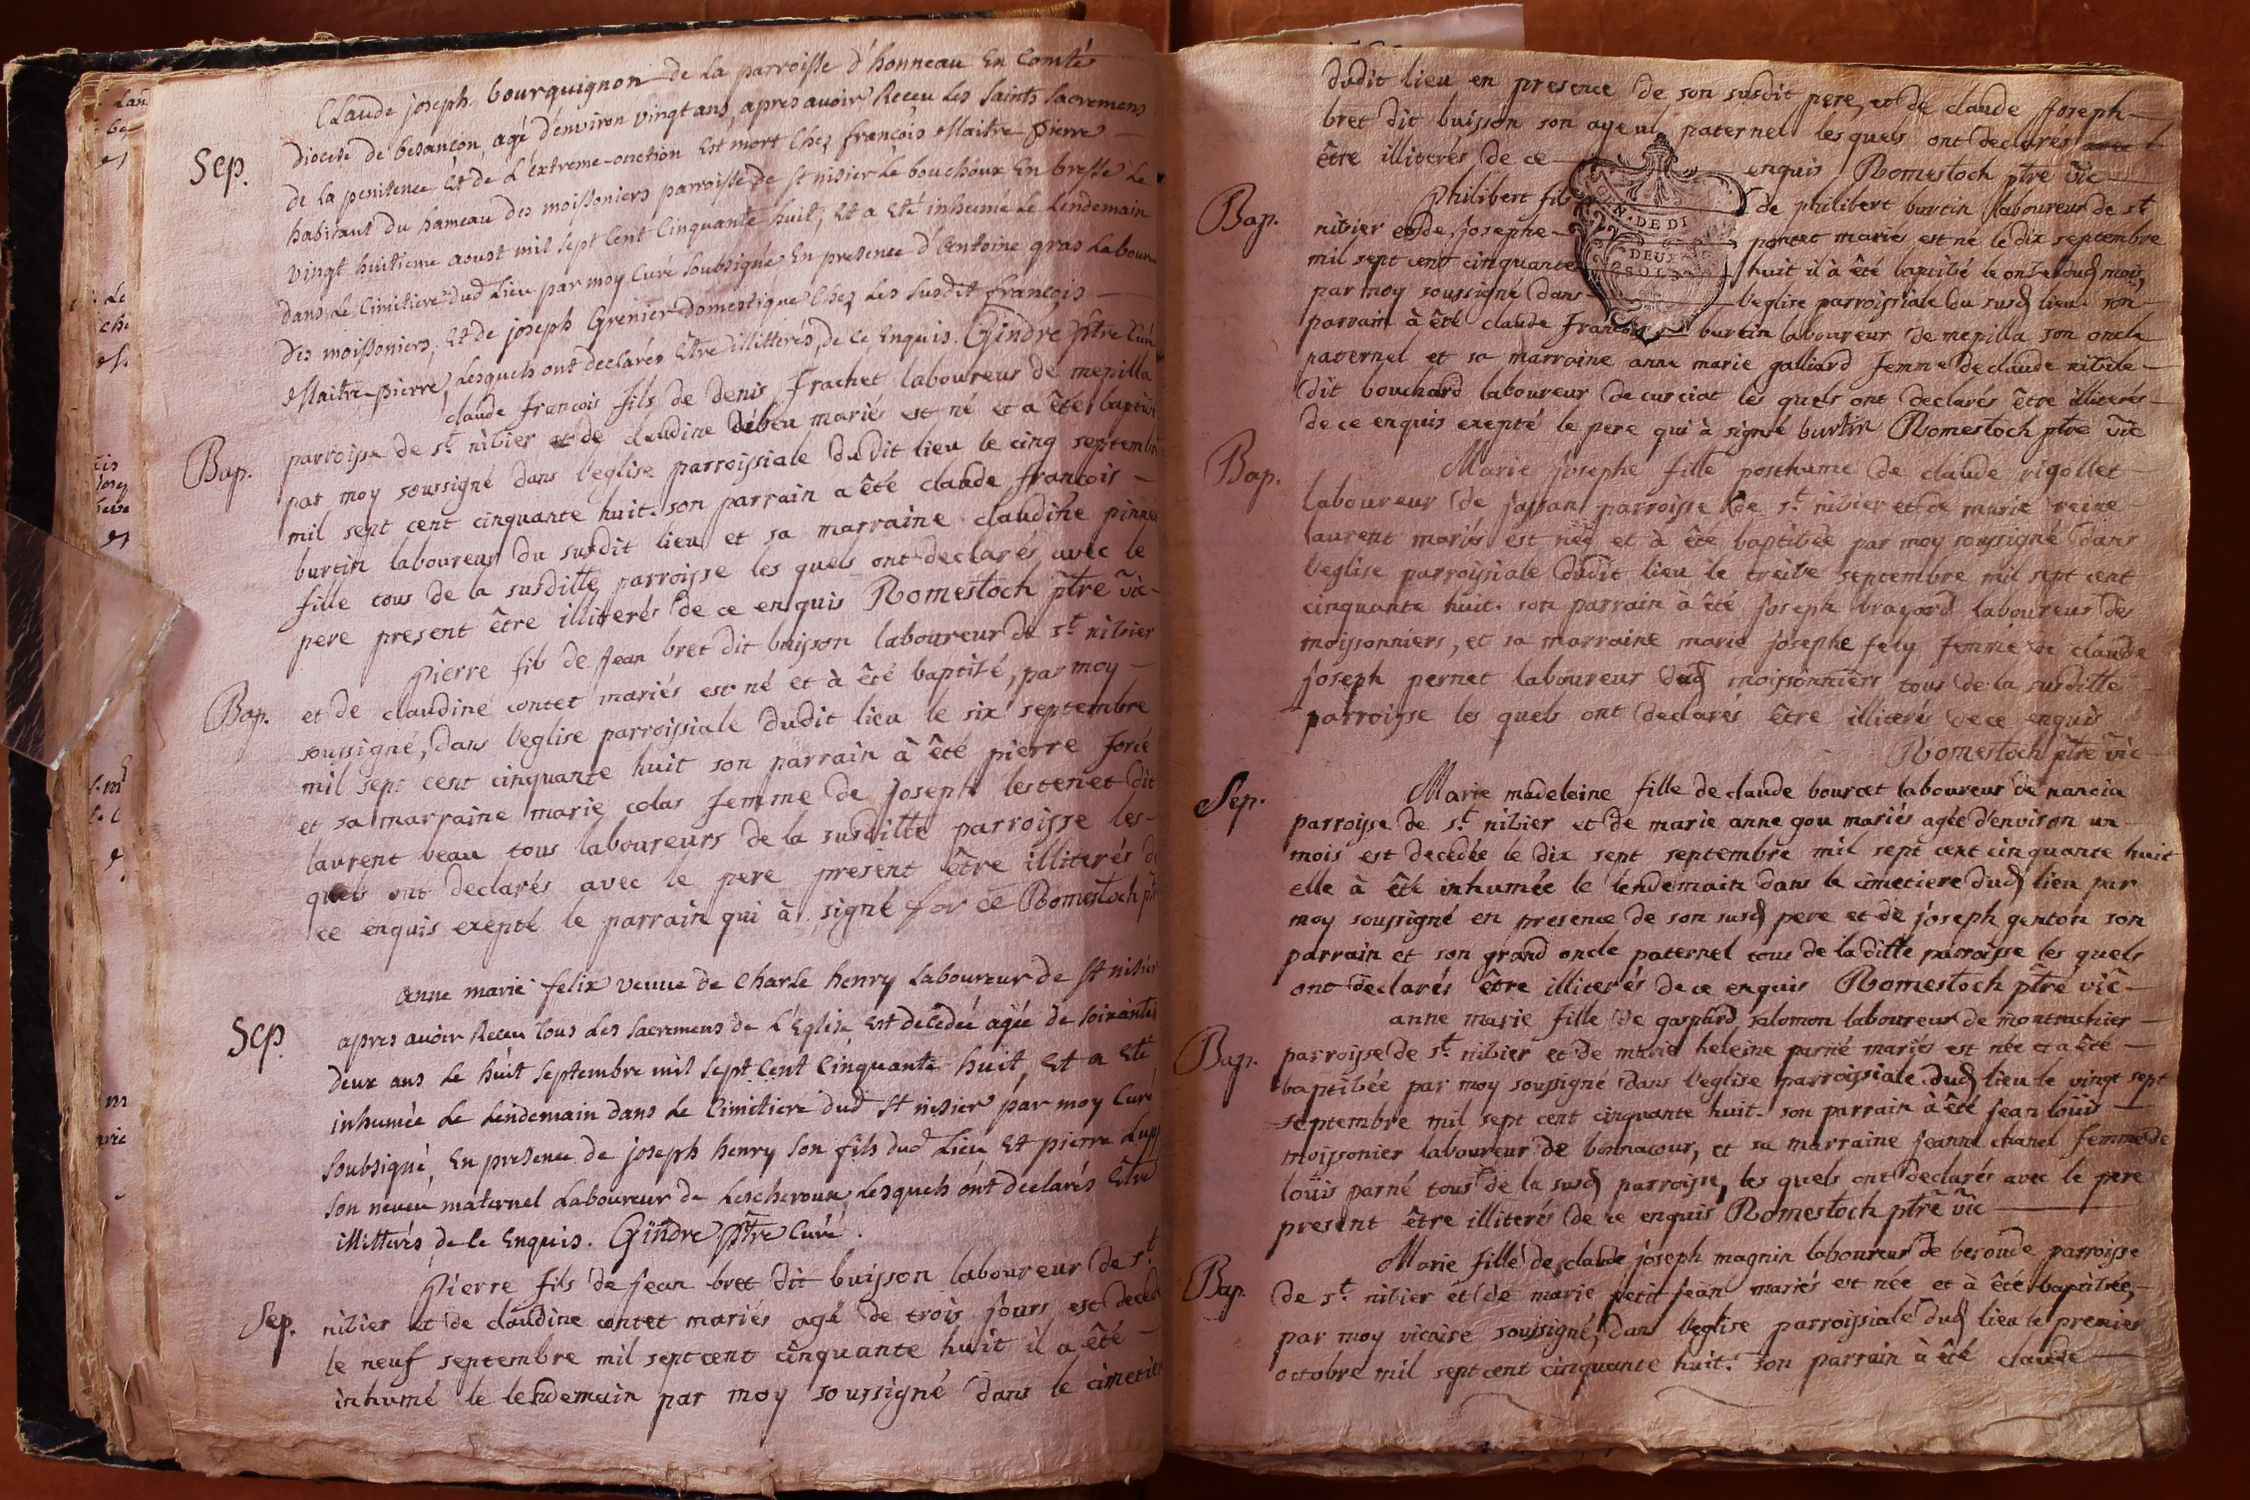 Claude joseph bourguignon de la parroisse d'honneau En Comtés
Sep.
diocese de besancon, agé d'environ vingt ans, apres avoir Receu Les Saints Sacremens
de la penitence Et de L'extreme-onction Est mort Chez françois Maitre pierre
habitant du hameau des moissoniers parroisse de st nisier Le bouchoux En bresse Le
vingt huitieme aoust mil sept Cent Cinquante huit, Et a Eté inhumé Le Lendemain
dans Le Cimitiere dud Lieu par moy Curé Soubsigné En presence d'Antoine gras Labour
des moissoniers, Et de joseph Grenier domestique Chez Les susdit françois
Maitre-pierre, Lesquels ont declarés Etre illitterés, de Ce Enquis. Gindre ptre Curé
claude francois fils de denis frachet laboureur de menilla
Bap.
parroisse de st nisier et de claudine débeu mariés est né et a êté baptisé
par moy soussigné dans l'eglise parroissiale dudit lieu le cinq septembre
mil sept cent cinquante huit. son parrain a êté claude françois
burtin laboureur du susdit lieu et sa marraine claudine
fille tous de la susditte parroisse les quels ont declarés avec le
pere present être illiterés de ce enquis Romestoch ptre vic
Pierre fils de jean bret dit buisson laboureur de st nisier
Bap.
et de claudine contet mariés est né et à êté baptisé, par moy
soussigné, dans l'eglise parroissiale dudit lieu le six septembre
mil sept cent cinquante huit son parrain à êté pierre
et sa marraine marie colas femme de joseph lestenet dit
laurent veau tous laboureurs de la susditte parroisse les-
quels ont declarés avec le pere present être illiterés de
ce enquis exepté le parrain qui à signé Romestoch ptr
Anne marie felix veuve de Charle henry Laboureur de St nisier
Sep.
apres avoir Receu tous Les sacremens de L'Eglise Est decedée agée de soixante
deux ans Le huit septembre mil sept Cent Cinquante huit, Et a Eté
inhumée Le Lendemain dans Le Cimitiere dud St nisier par moy Curé
Soubsigné, En presence de joseph henry son fils dud Lieu Et pierre
son neveu maternel Laboureur de Lescheroux, Lesquels ont declarés Etre
illitterés, de Ce Enquis. Gindre ptre Curé.
Pierre fils de jean bret dit buisson laboureur de st
Sep.
nisier et de claudine contet mariés agé de trois jours est decedé
le neuf septembre mil sept cent cinquante huit il a êté
inhumé le lendemain par moy soussigné dans le cimetier
dudit lieu en presence de son susdit pere, et de claude joseph
bret dit buisson son ayeul paternel les quels ont declarés
être illiterés de ce enquis Romestoch ptre vic
GEN. DE DI
DEUX
SOLS
Philibert fils de philibert burtin laboureur de st
Bap.
nisier et de josephe pontet mariés est né le dix septembre
mil sept cent cinquante huit il à êté baptisé le onze dud mois,
par moy soussigné dans l'eglise parroissiale du susd lieu. son
parrain à êté claude françois burtin laboureur de menilla son oncle
paternel et sa marraine anne marie galliard femme de claude
dit bouchard laboureur de curciat les quels ont declarés être illiterés
de ce enquis exepté le pere qui à signé burtin Romestoch ptre vic
Bap.
Marie josephe fille posthume de claude rigollet
laboureur de jassan parroisse de st nisier et de marie reine
laurent mariés est née et à êté baptisée par moy soussigné dans
l'eglise parroissiale dudit lieu le treize septembre mil sept cent
cinquante huit. son parrain à êté joseph brayard laboureur des
moissonniers, et sa marraine marie josephe fely femme de claude
joseph pernet laboureur dud moissonniers tous de la susditte
parroisse les quels ont declarés être illiterés de ce enquis
Romestoch ptre vic
Sep.
Marie madeleine fille de claude bourcet laboureur de nancia
parroisse de st nisier et de marie anne gou mariés agée d'environ un
mois est decedée le dix sept septembre mil sept cent cinquante huit
elle à êté inhumée le lendemain dans le cimetiere dud lieu par
moy soussigné en presence de son susd pere et de joseph genton son
parrain et son grand oncle paternel tous de laditte parroisse les quels
ont declarés être illiterés de ce enquis Romestoch ptre vic
anne marie fille de gaspard salomon laboureur de montrachier
Bap.
parroisse de st nisier et de marie heleine parné mariés est née et a êté
baptisée par moy soussigné dans l'eglise parroissiale dud lieu le vingt sept
septembre mil sept cent cinquante huit. son parrain à êté jean loüis
moissonier laboureur de bonnacour, et sa marraine jeanne chanel femme de
loüis parné tous de la susd parroisse, les quels ont declarés avec le pere
present être illiterés de ce enquis Romestoch ptre vic
Marie fille de claude joseph magnin laboureur de besonde parroisse
Bap.
de st nisier et de marie petit jean mariés est née et à êté baptisée,
par moy vicaire soussigné, dans l'eglise parroissiale dud lieu le premier
octobre mil sept cent cinquante huit. son parrain à êté claude